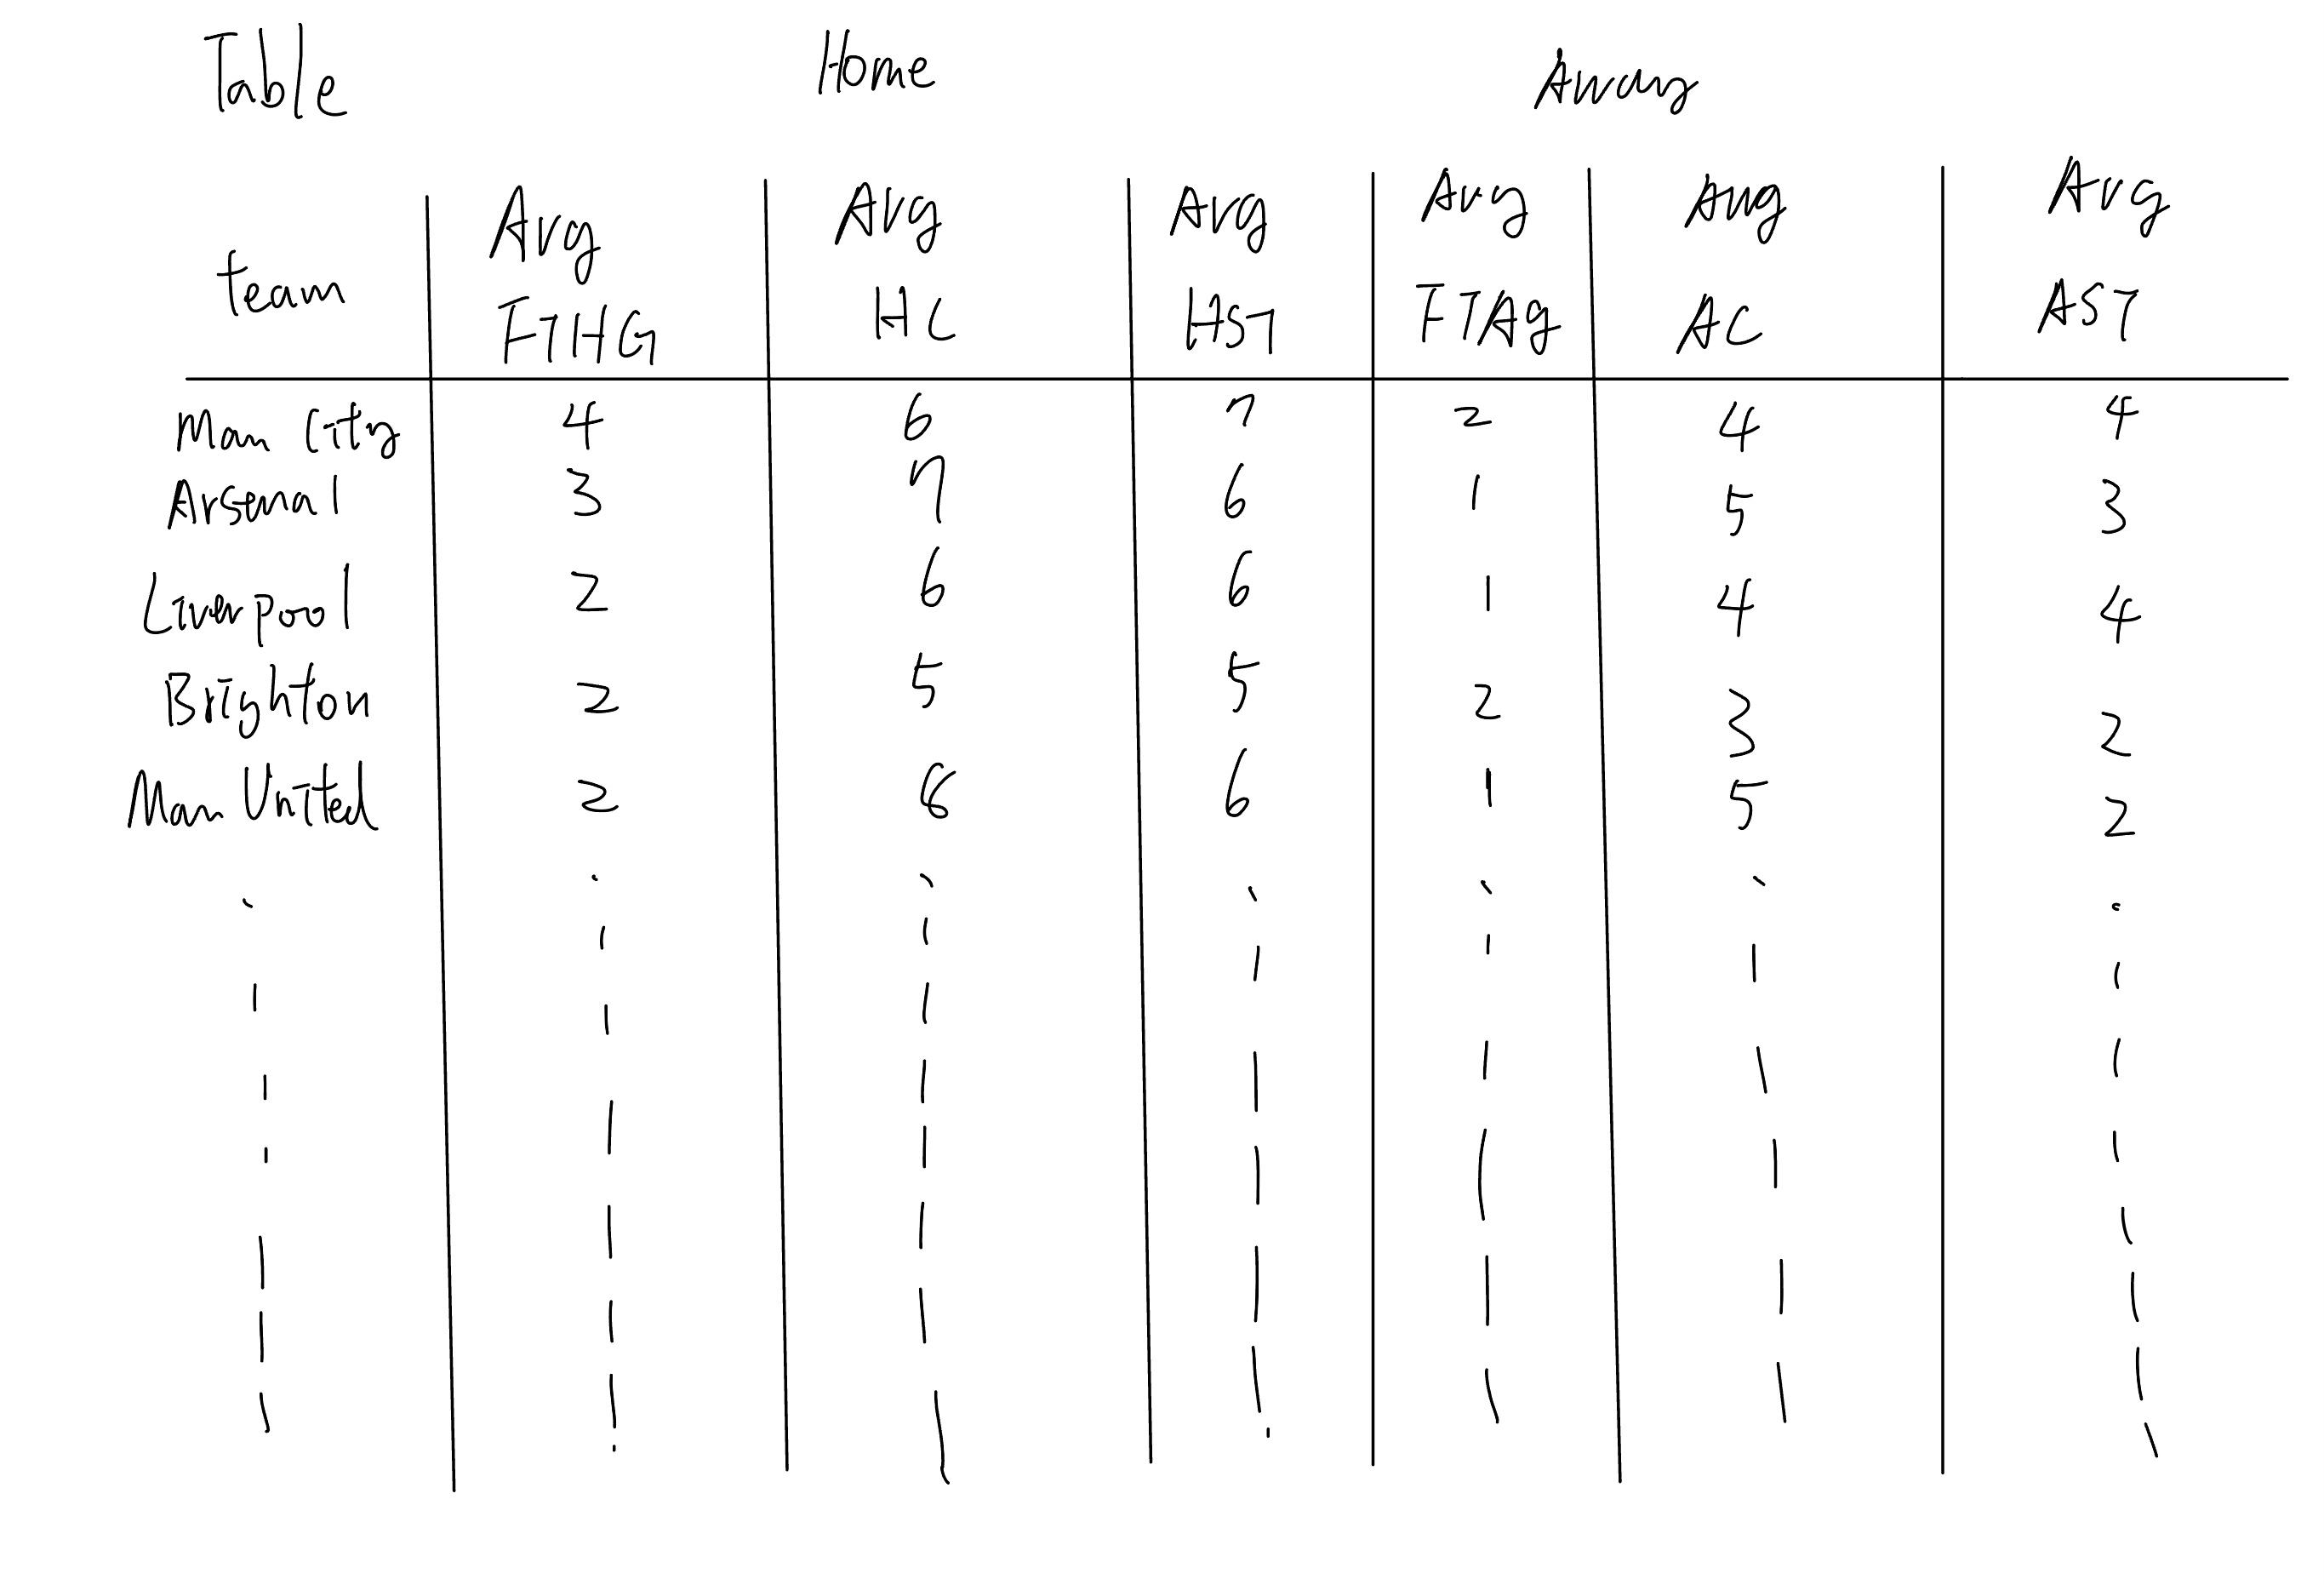 Table Home Away
team Avg FTHG Avg HC Avg HST Avg FTAg Avg AC Avg AST
Man City 4 6 7 2 4 4
Arsenal 3 7 6 1 5 3
Liverpool 2 6 6 1 4 4
Brighton 2 5 5 2 3 2
Man United 2 6 6 1 5 2